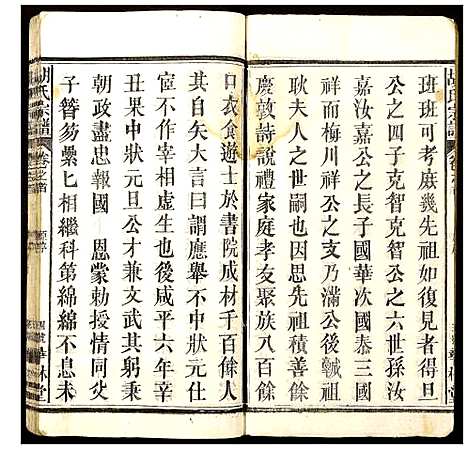 班班可考庶幾先祖如復見者得旦
公之四子克智克智公之六世孫汝
嘉汝嘉公之長子國華次國泰三國
祥而梅川祥公之支乃滿公後嗣祖
耿夫人之世嗣也因先世積善餘
慶敦詩說禮家庭孝友聚族八百餘
口衣食遊士於書院成材千百餘人
其自矢大言曰謂應舉不中狀元仕
宦不作宰相虛生也後咸平六年辛
丑果中狀元旦公才兼文武其躬秉
朝政盡忠報國 恩蒙勅授情同㳄
子簪笏纍匕相繼科第綿綿不息未
胡氏宗譜
華林堂